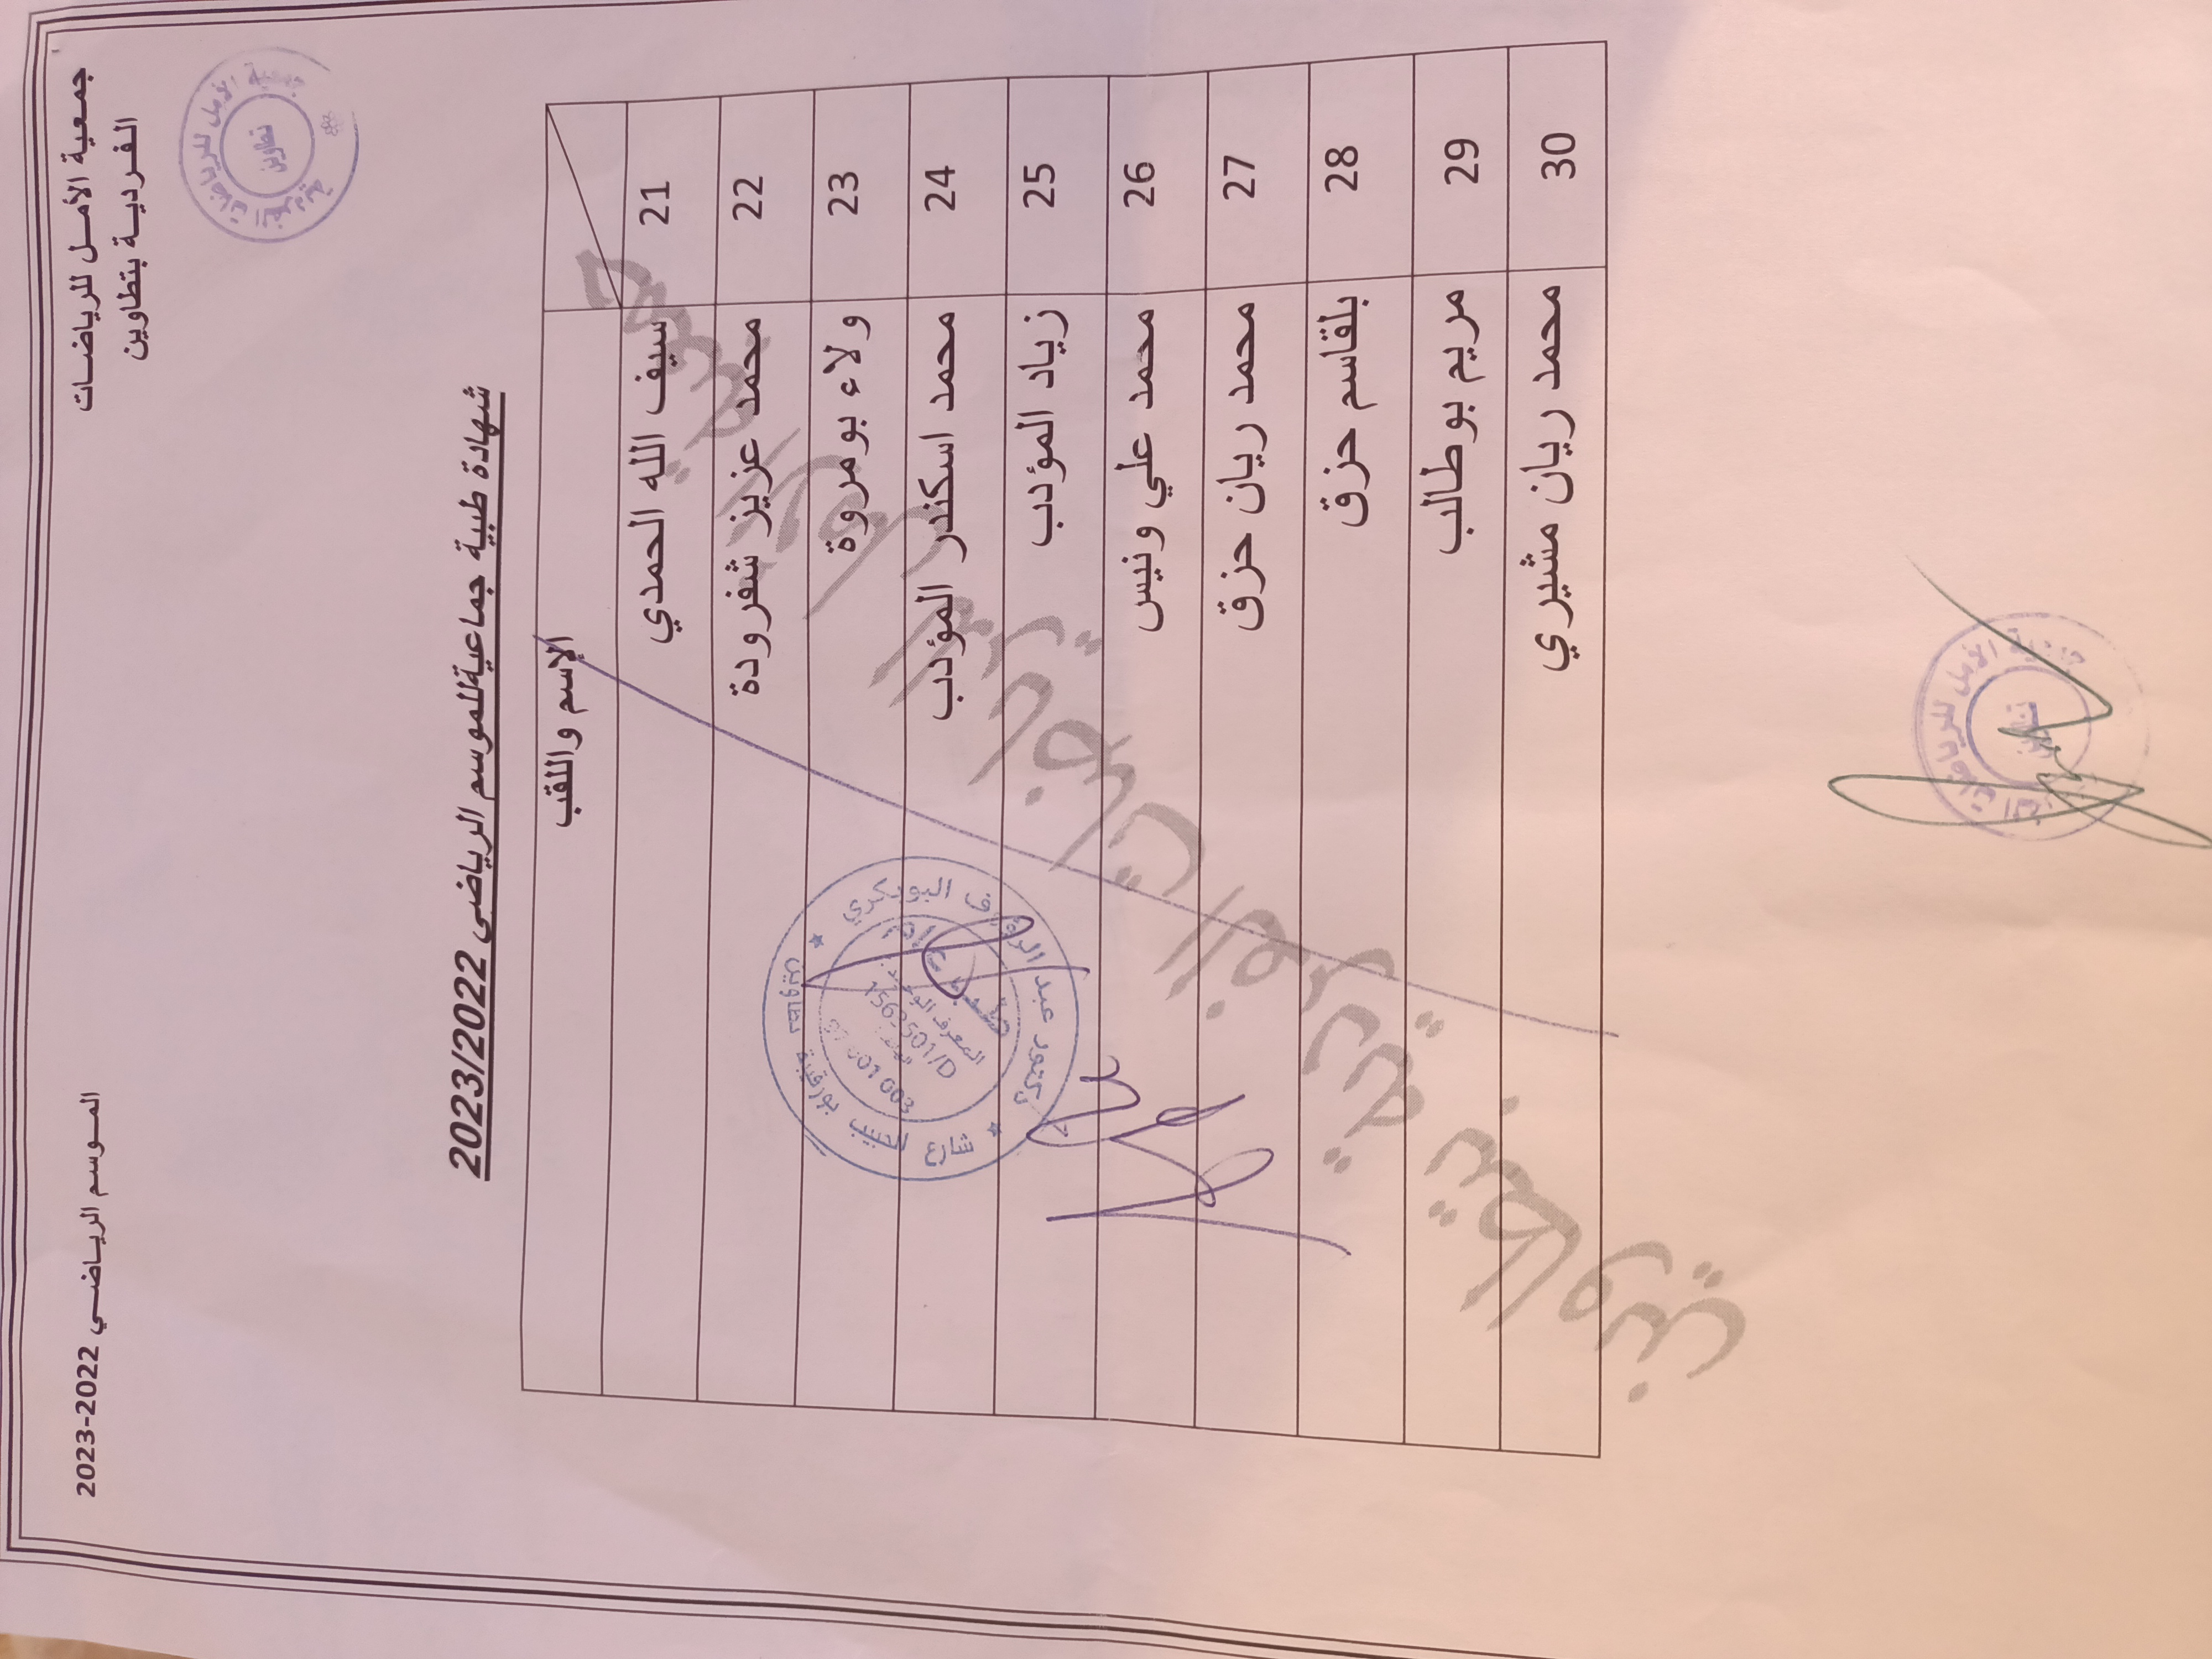 جمعية الأمل للرياضات
الفردية بتطاوين
الموسم الرياضي 2022-2023
شهادة طبية جماعية للموسم الرياضي 2023/2022
الإسم واللقب
21 سيف الله الحمدي
22 محمد عزيز شفرودة
23 ولاء بومروة
24 محمد اسكندر المؤدب
25 زياد المؤدب
26 محمد علي ونيس
27 محمد ريان حزق
28 بلقاسم حزق
29 مريم بوطالب
30 محمد ريان مشيري
جمعية الأمل للرياضات الفردية بتطاوين
جمعية الأمل للرياضات الفردية
تطاوين
دكتور عبد الرؤوف البوبكري
شارع الحبيب بورقيبة تطاوين
جمعية الأمل للرياضات
تطاوين